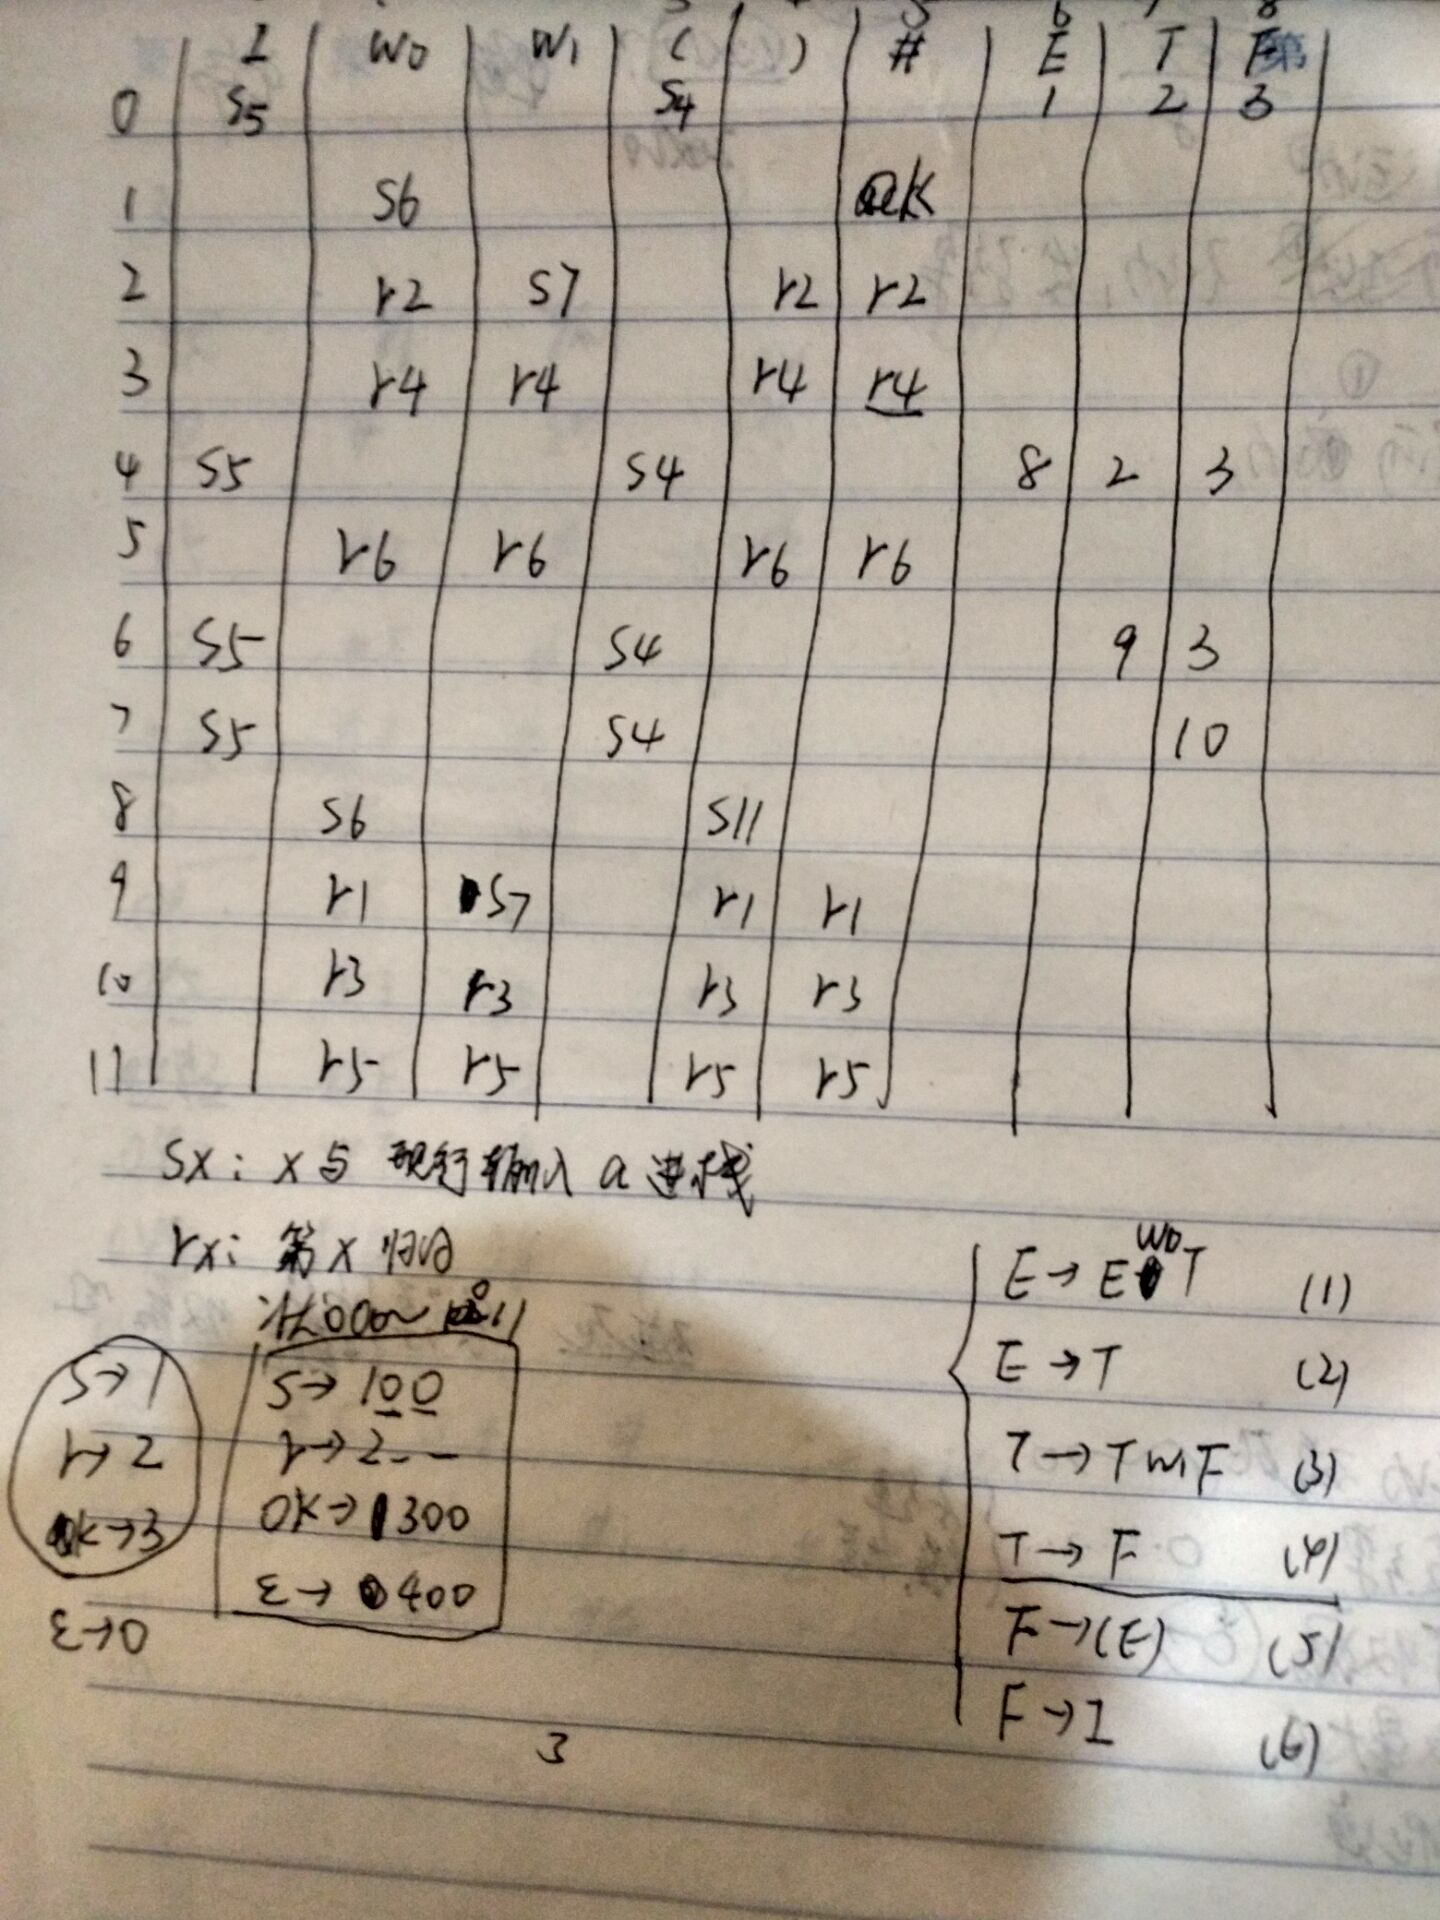 5 6 7 8
I W0 W1 ( ) # E T F
0 S5 S4 1 2 3
1 S6 ok
2 r2 S7 r2 r2
3 r4 r4 r4 r4
4 S5 S4 8 2 3
5 r6 r6 r6 r6
6 S5 S4 9 3
7 S5 S4 10
8 S6 S11
9 r1 S7 r1 r1
10 r3 r3 r3 r3
11 r5 r5 r5 r5
Sx: x与现行输入a进栈
rx: 第x归约
S→1
r→2
ok→3
ε→0
S→100
r→2--
OK→300
ε→400
E→E W0 T (1)
E→T (2)
T→T W1 F (3)
T→F (4)
F→(E) (5)
F→I (6)
3